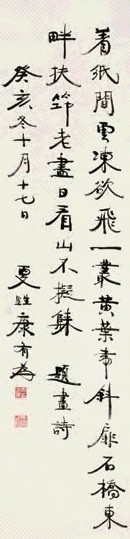 着纸間雲凍欲飛一叢黄葉帯斜扉石橋東
畔扶筇老盡日看山不擬歸 題畫詩
癸亥冬十月十七日
更甡康有為